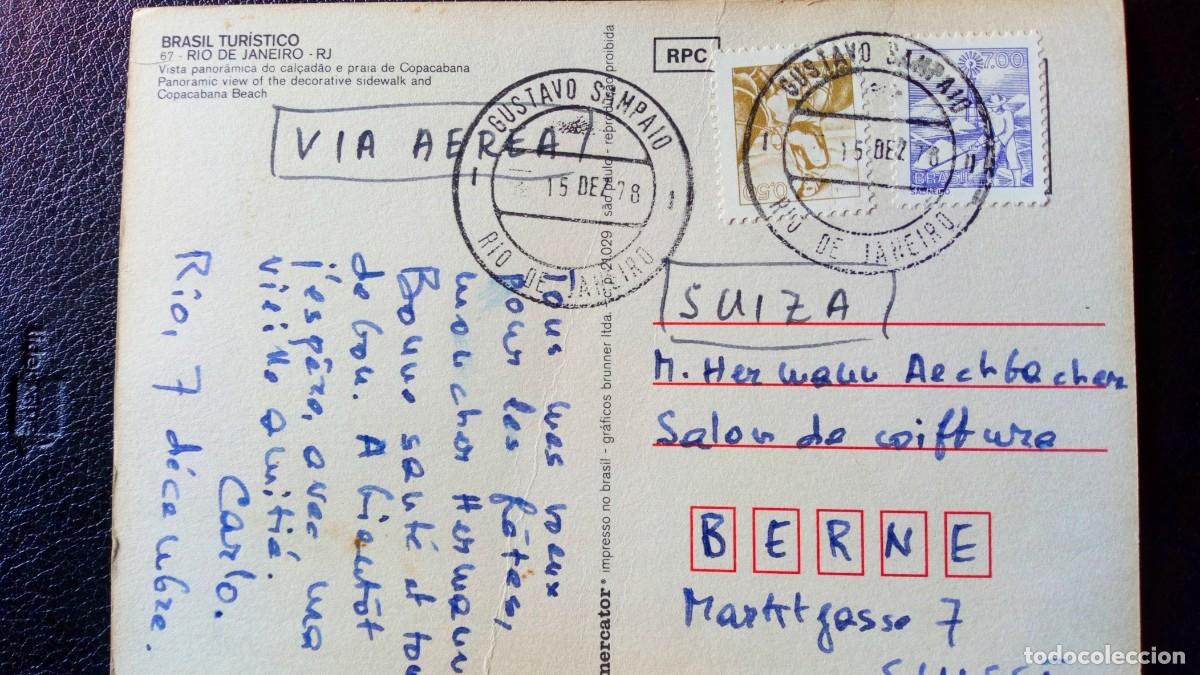 BRASIL TURÍSTICO
67 - RIO DE JANEIRO - RJ
Vista panorâmica do calçadão e praia de Copacabana
Panoramic view of the decorative sidewalk and
Copacabana Beach
VIA AEREA
GUSTAVO SAMPAIO
15 DEZ 78
RIO DE JANEIRO
RPC
0,50
GUSTAVO SAMPAIO
15 DEZ 78
RIO DE JANEIRO
7,00
BRASIL
Tous mes voeux
pour les fêtes,
mon cher Hermann
Bonne santé et tou
de bon. A bientôt
j'espère, avec ma
vieille amitié.
Carlo.
Rio, 7 décembre.
mercator® impresso no brasil - gráficos brunner ltda. - c.p. 21029 - são paulo - reprodução proibida
SUIZA
M. Hermann Aeschbacher
Salon de coiffure
BERNE
Marktgasse 7
todocoleccion